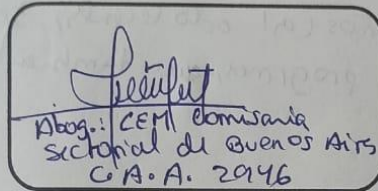 Abog.: CEM Comisaria
Sectorial de Buenos Aires
C.A.A. 2946